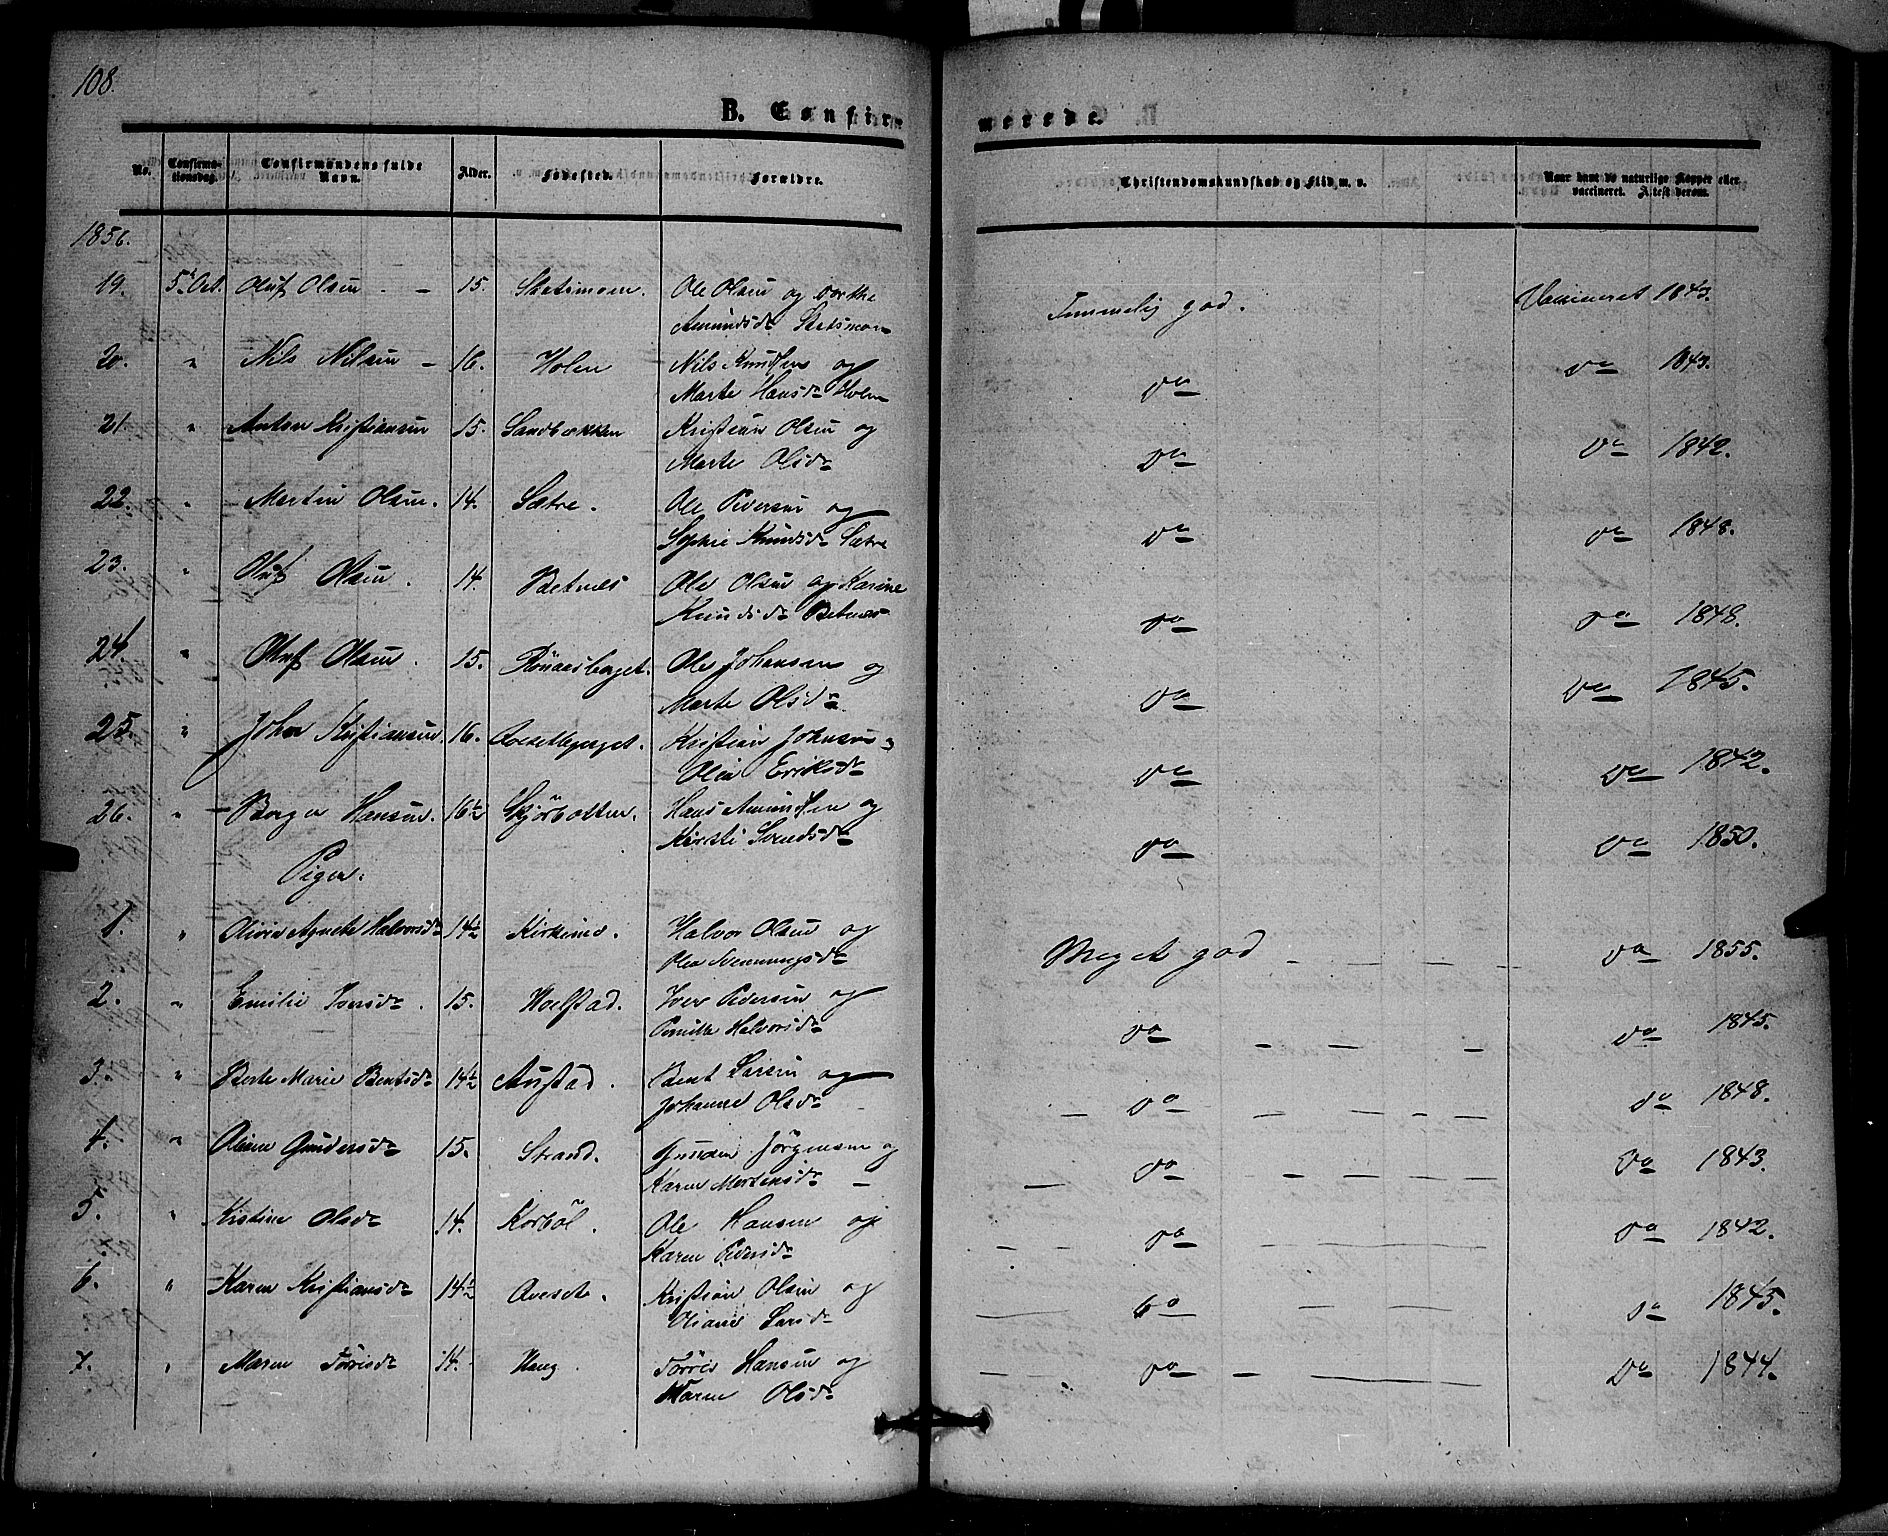 108.
B. Confirmerede.
No. Confirmationsdag. Confirmandens fulde Navn. Alder. Fødested. Forældre. Christendomskundskab og Flid m. v. Naar havt de naturlige Kopper eller vaccineret. Attest derom.
1856.
19. 5 Oct. Oluf Olsen - 15. Ole Olsen og Dorthe Temmelig god. Vaccineret 1843.
Amundsd
20. " Nils Nilsen - 16. Holen Nils Knudsen og do do 1843.
Marte Hansd Holen
21. " Anton Kristiansen 15. Sandbækken Kristian Olsen og do do 1842.
Marte Olsd
22. " Martin Olsen. 14. Sætre. Ole Pedersen og do do 1848.
Sophie Knudsd Sætre
23. " Oluf Olsen. 14. Betnes Ole Olsen og Karine do do 1848.
Knudsd Betnes
24. " Oluf Olsen. 15. Ole Johansen og do do 1845.
Marte Olsd
25. " Johan Kristiansen. 16. Kristian Johnsen do do 1842.
Olea Eriksd
26. " Borger Hansen. 16½ Skjørbotten. Hans Amundsen og do do 1850.
Kirsti Svendsd
Piger.
1. " Agnete Halvorsd 14½ Halvor Olsen og Meget god do 1855.
Olea
2. " Emilie Iversd. 15. Hoelstad. Iver Pedersen og do do 1845.
Pernille Halvorsd
3. " Berte Marie Bentsd 14½ Austad. Bent Larsen og do do 1848.
Johanne Olsd
4. " Gundersd 15. Strand. Gunder Jörgensen og do do 1843.
Karen Mortensd
5. " Kristine Olsd 14. Korböl. Ole Hansen og do do 1842.
Karen Pedersd
6. " Karen Kristiansd 14½ Kristian Olsen og do do 1845.
Larsd
7. " Maren Törrisd 14. Haug. Törris Hansen og do do 1844.
Maren Olsd